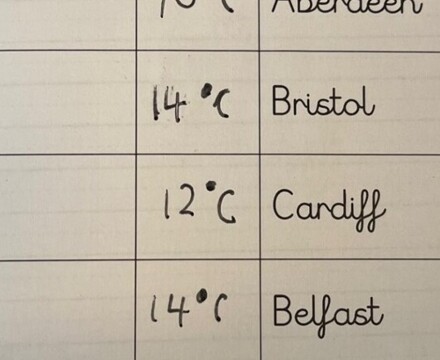 Aberdeen
14 °C Bristol
12 °C Cardiff
14 °C Belfast